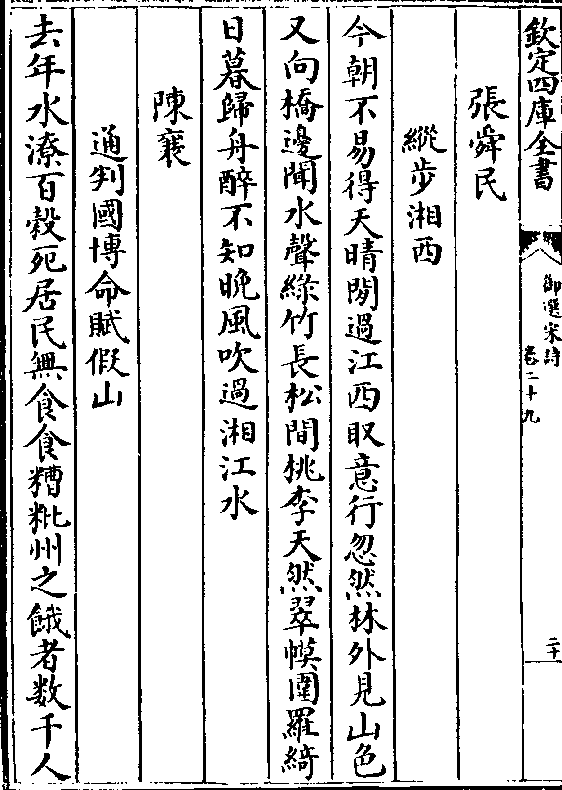 欽定四庫全書
御選宋詩
卷二十九
二十
張舜民
縱步湘西
今朝不易得天晴閒過江西取意行忽然林外見山色
又向橋邊聞水聲綠竹長松間桃李天然翠幙圍羅綺
日暮歸舟醉不知晚風吹過湘江水
陳襄
通判國博命賦假山
去年水潦百穀死居民無食食糟粃州之餓者數千人